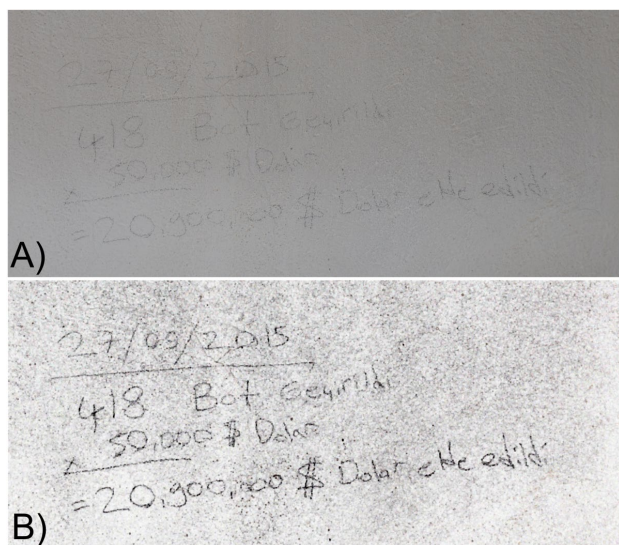 A)
27/09/2015
418 Bot Geçirildi
50,000 $ Dolar
x
=20,900,000 $ Dolar elde edildi
B)
27/09/2015
418 Bot Geçirildi
50,000 $ Dolar
x
=20,900,000 $ Dolar elde edildi